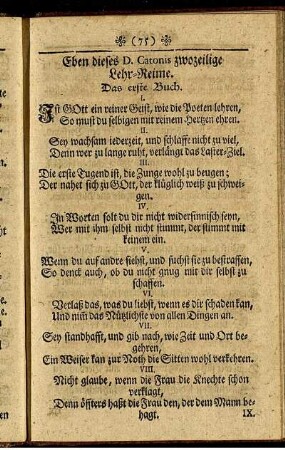 (75)
Eben dieses D. Catonis zwozeilige
Lehr-Reime.
Das erste Buch.
I.
Ist GOtt ein reiner Geist, wie die Poeten lehren,
So must du selbigen mit reinem Hertzen ehren.
II.
Sey wachsam iederzeit, und schlaffe nicht zu viel,
Denn wer zu lange ruht, verlängt das Laster-Ziel.
III.
Die erste Tugend ist, die Zunge wohl zu beugen;
Der nahet sich zu GOtt, der klüglich weiß zu schwei-
gen.
IV.
In Worten solt du dir nicht widersinnisch seyn,
Wer mit ihm selbst nicht stimmt, der stimmt mit
keinem ein.
V.
Wenn du auf andre siehst, und suchst sie zu bestraffen,
So denck auch, ob du nicht gnug mit dir selbst zu
schaffen.
VI.
Verlaß das, was du liebst, wenn es dir schaden kan,
Und nim das Nützlichste von allen Dingen an.
VII.
Sey standhafft, und gib nach, wie Zeit und Ort be-
gehren,
Ein Weiser kan zur Noth die Sitten wohl verkehren.
VIII.
Nicht glaube, wenn die Frau die Knechte schon
verklagt,
Denn öffters haßt die Frau den, der dem Mann be-
hagt. IX.